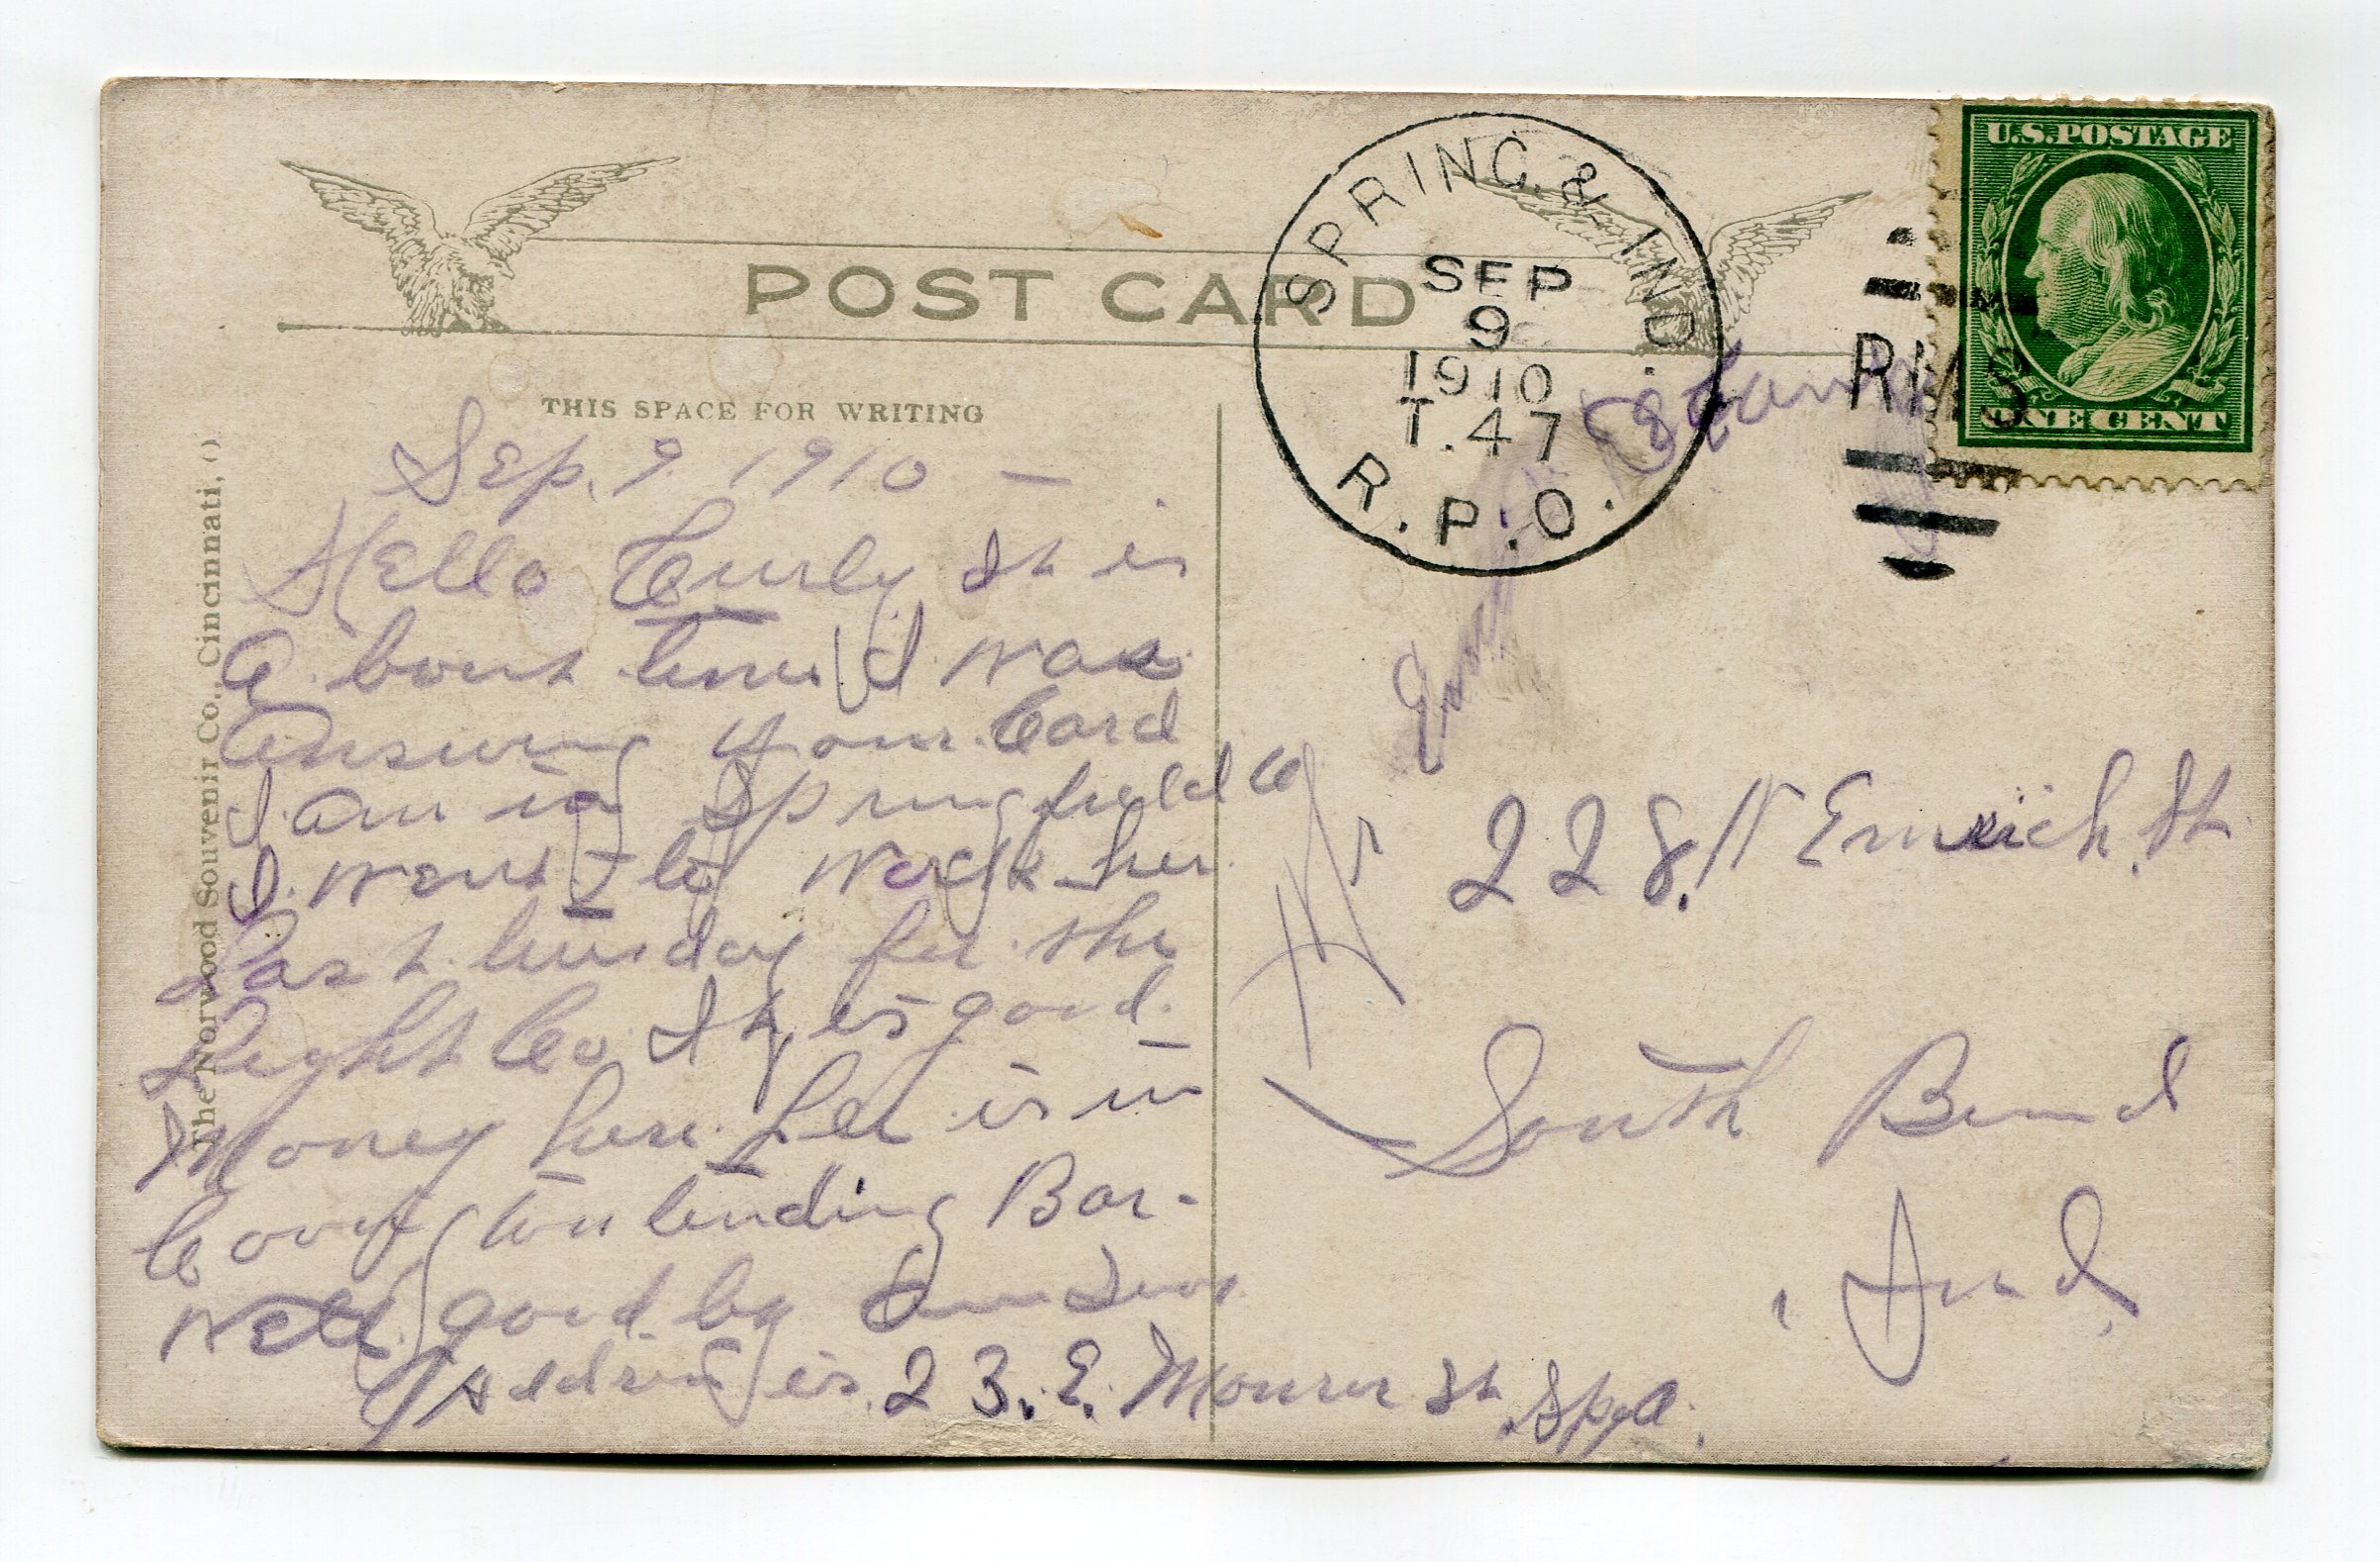 U.S.POSTAGE
ONE CENT
SPRING. & IND.
SEP
9
1910
T.47
R.P.O.
RMS
POST CARD
THIS SPACE FOR WRITING
The Norwood Souvenir Co., Cincinnati, O
Sep. 9 1910 —
Hello Curly It is
A bout time I was
Answering your Card
I am in Springfield O
I went to work her
Last tuesday for the
Light Co It is good
Money here. Lee is in
Covington tending Bar-
Well good by
Address is 23. E. Monroe St Spgd.
228 N Emrich St
South Bend
Ind.